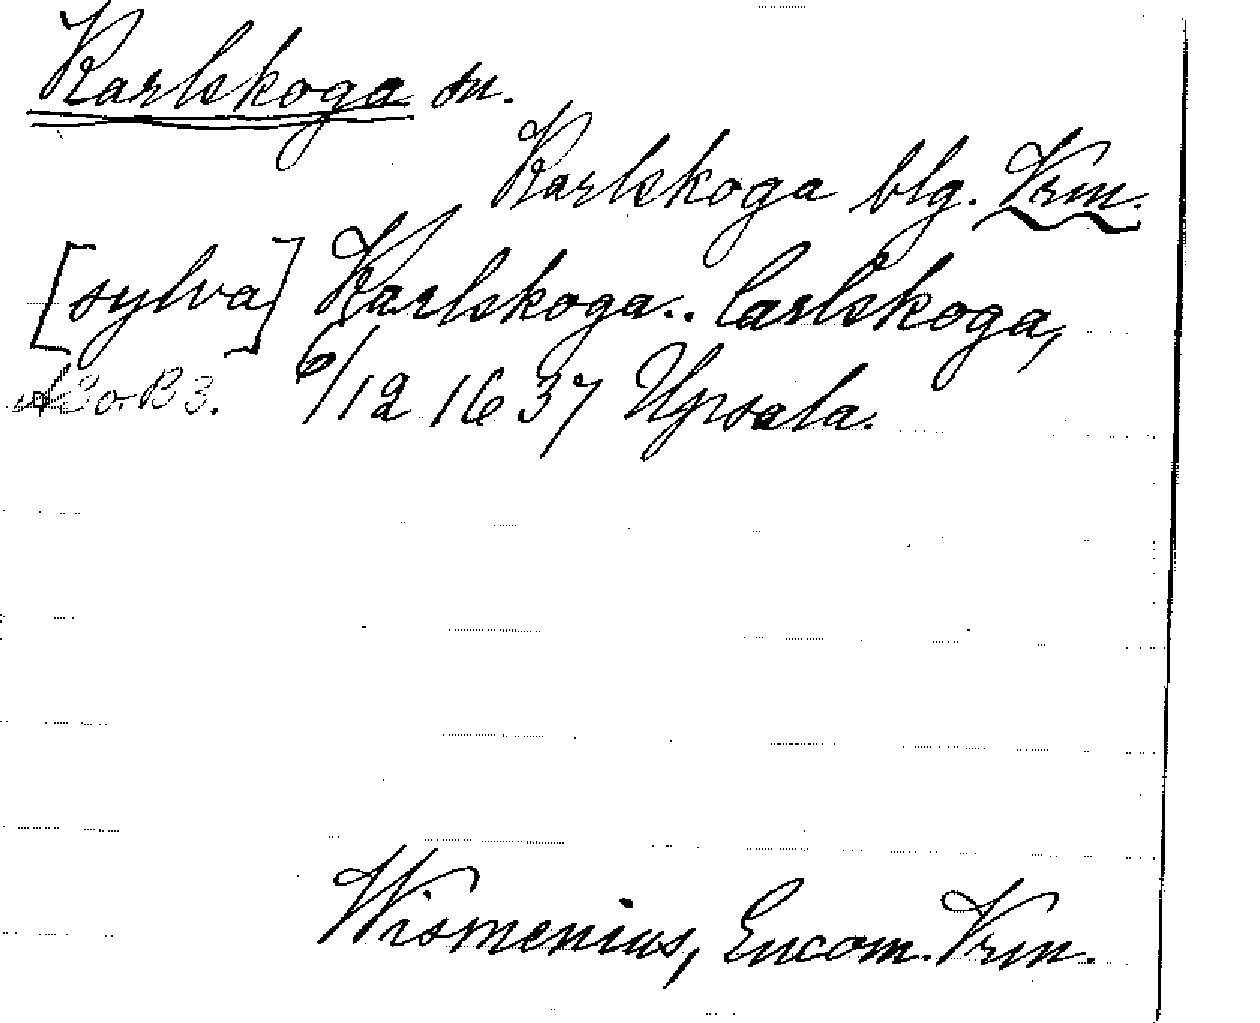 Karlskoga sn.
Karlskoga blg. Vrm.
[sylva] Karlskoga.. Carlskoga,
6/12 1637 Upsala.
Wismenius, Encom. Vrm.